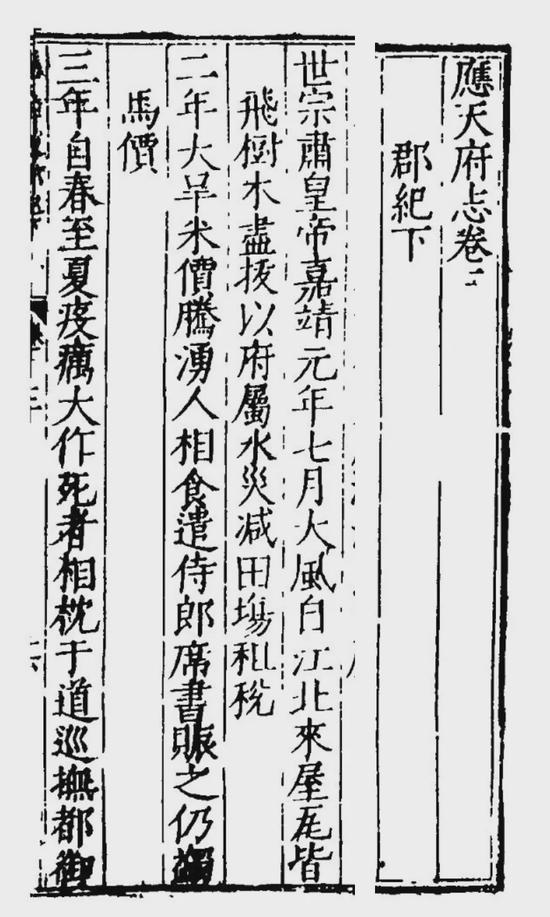 應天府志卷二
郡紀下
世宗肅皇帝嘉靖元年七月大風自江北來屋瓦皆
飛樹木盡拔以府屬水災减田塲租稅
二年大旱米價騰湧人相食遣侍郎席書賑之仍蠲
馬價
三年自春至夏疫癘大作死者相枕于道巡撫都御